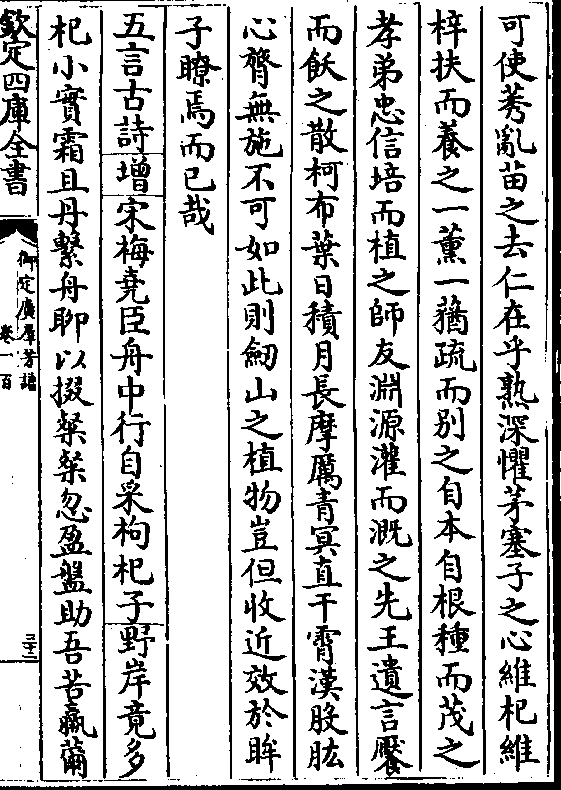 可使莠亂苗之去仁在乎熟深懼茅塞子之心維杞維
梓扶而養之一薰一蕕疏而別之自本自根種而茂之
孝弟忠信培而植之師友淵源灌而溉之先王遺言饜
而飫之散柯布葉日積月長摩厲青冥直干霄漢股肱
心膂無施不可如此則劒山之植物豈但收近效於眸
子瞭焉而已哉
五言古詩增宋梅堯臣舟中行自采枸杞子野岸竟多
杞小實霜且丹繫舟聊以掇粲粲忽盈盤助吾苦羸薾
欽定四庫全書
御定廣羣芳譜
卷一百
三十二